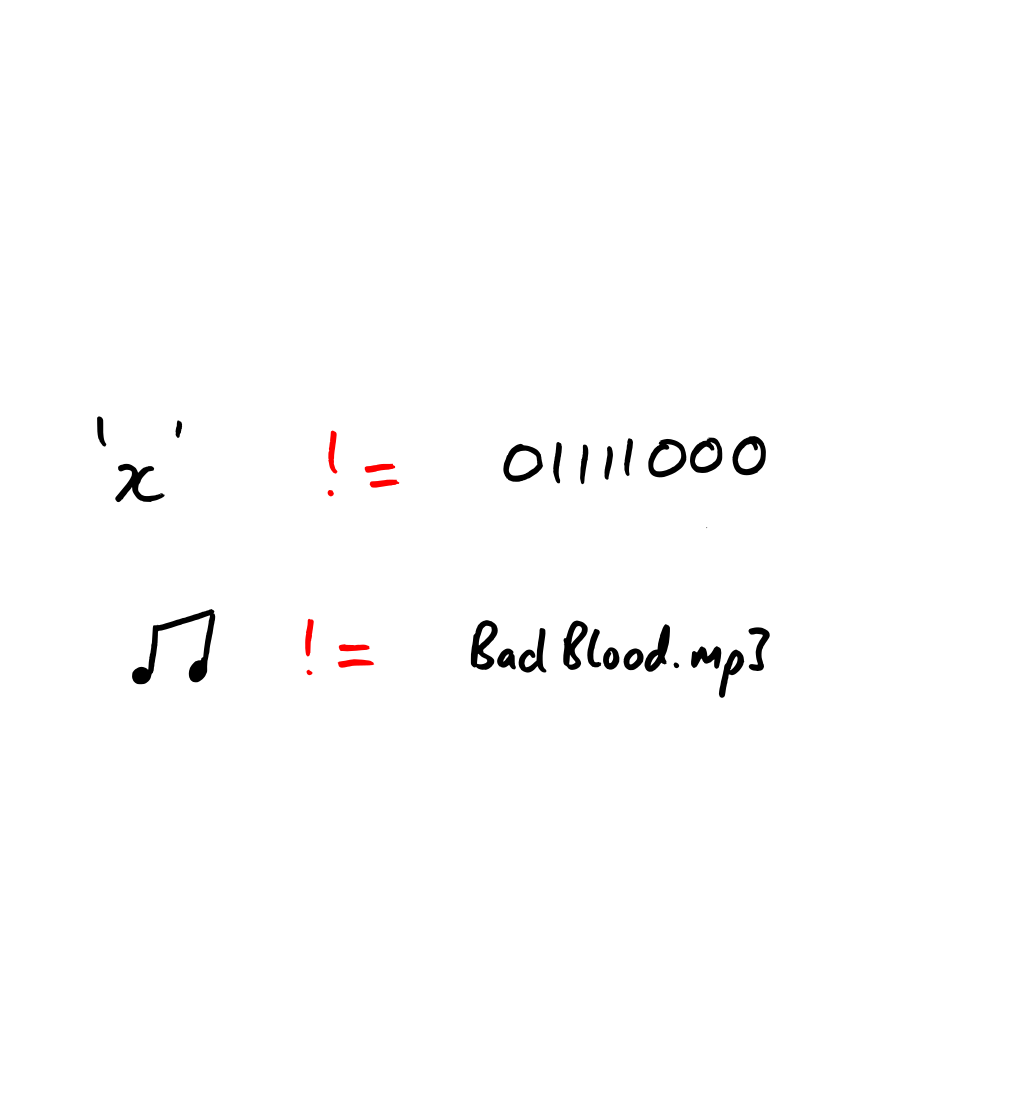 'x' != 01111000
♫ != Bad Blood.mp3